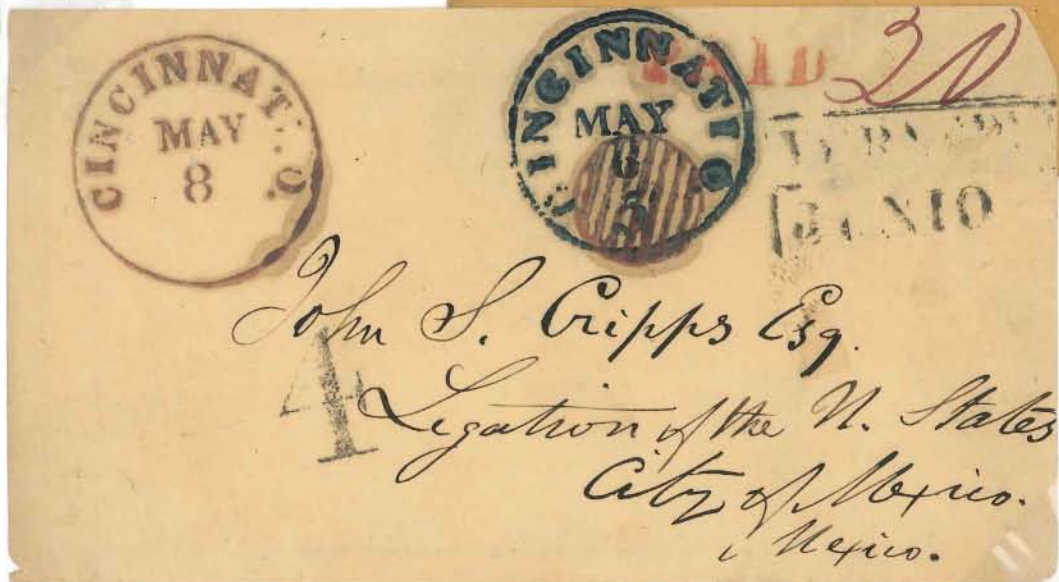 CINCINNATI. O.
MAY
8
CINCINNATI O.
MAY
PAID
20
JUNIO
4
John S. Cripps Esq.
Legation of the U. States
City of Mexico.
Mexico.